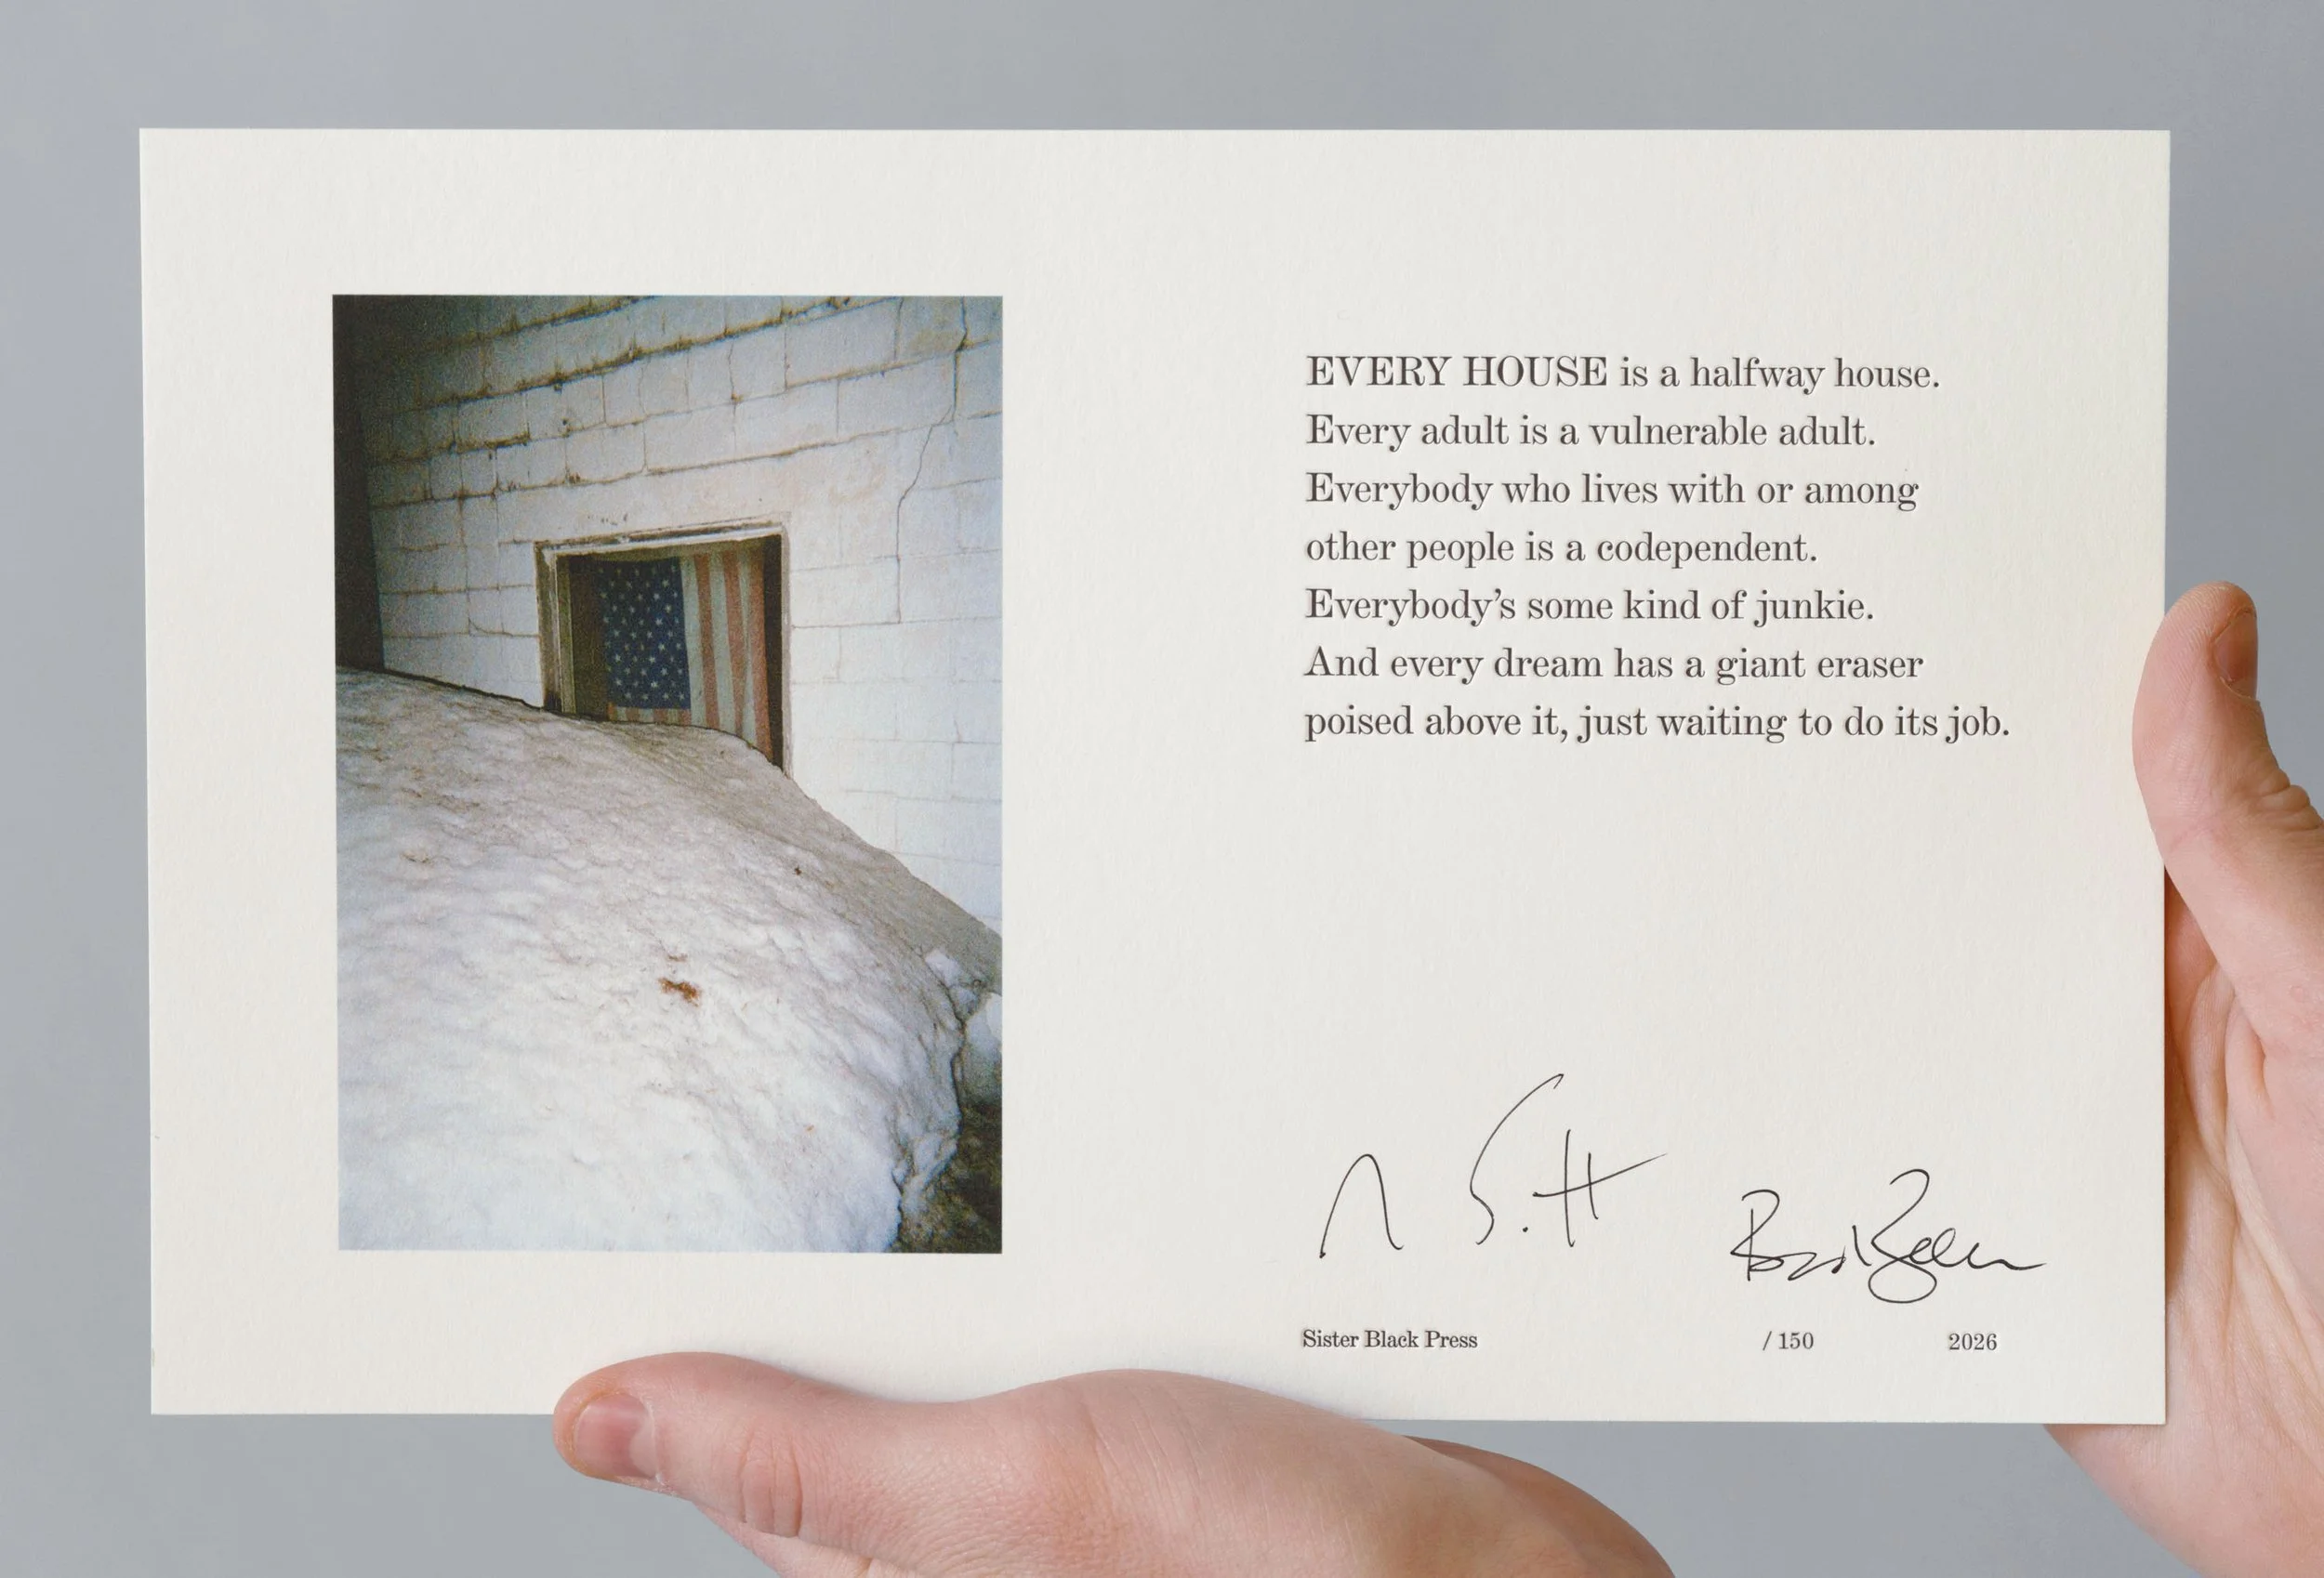 EVERY HOUSE is a halfway house.
Every adult is a vulnerable adult.
Everybody who lives with or among
other people is a codependent.
Everybody’s some kind of junkie.
And every dream has a giant eraser
poised above it, just waiting to do its job.
Sister Black Press / 150 2026